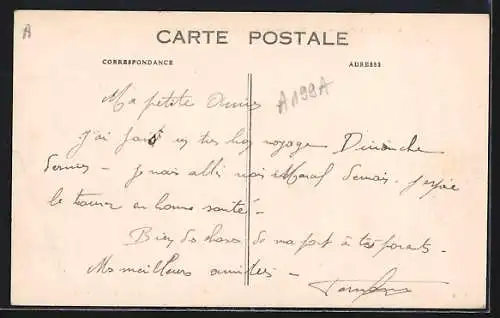 A
CARTE POSTALE
CORRESPONDANCE
ADRESSE
A199A
Ma petite
J'ai fait un très bon voyage Dimanche
dernier - je vais aller voir Marcel demain. J'espère
le trouver en bonne santé -
Bien des choses de ma part à tes parents -
Mes meilleures amitiés -